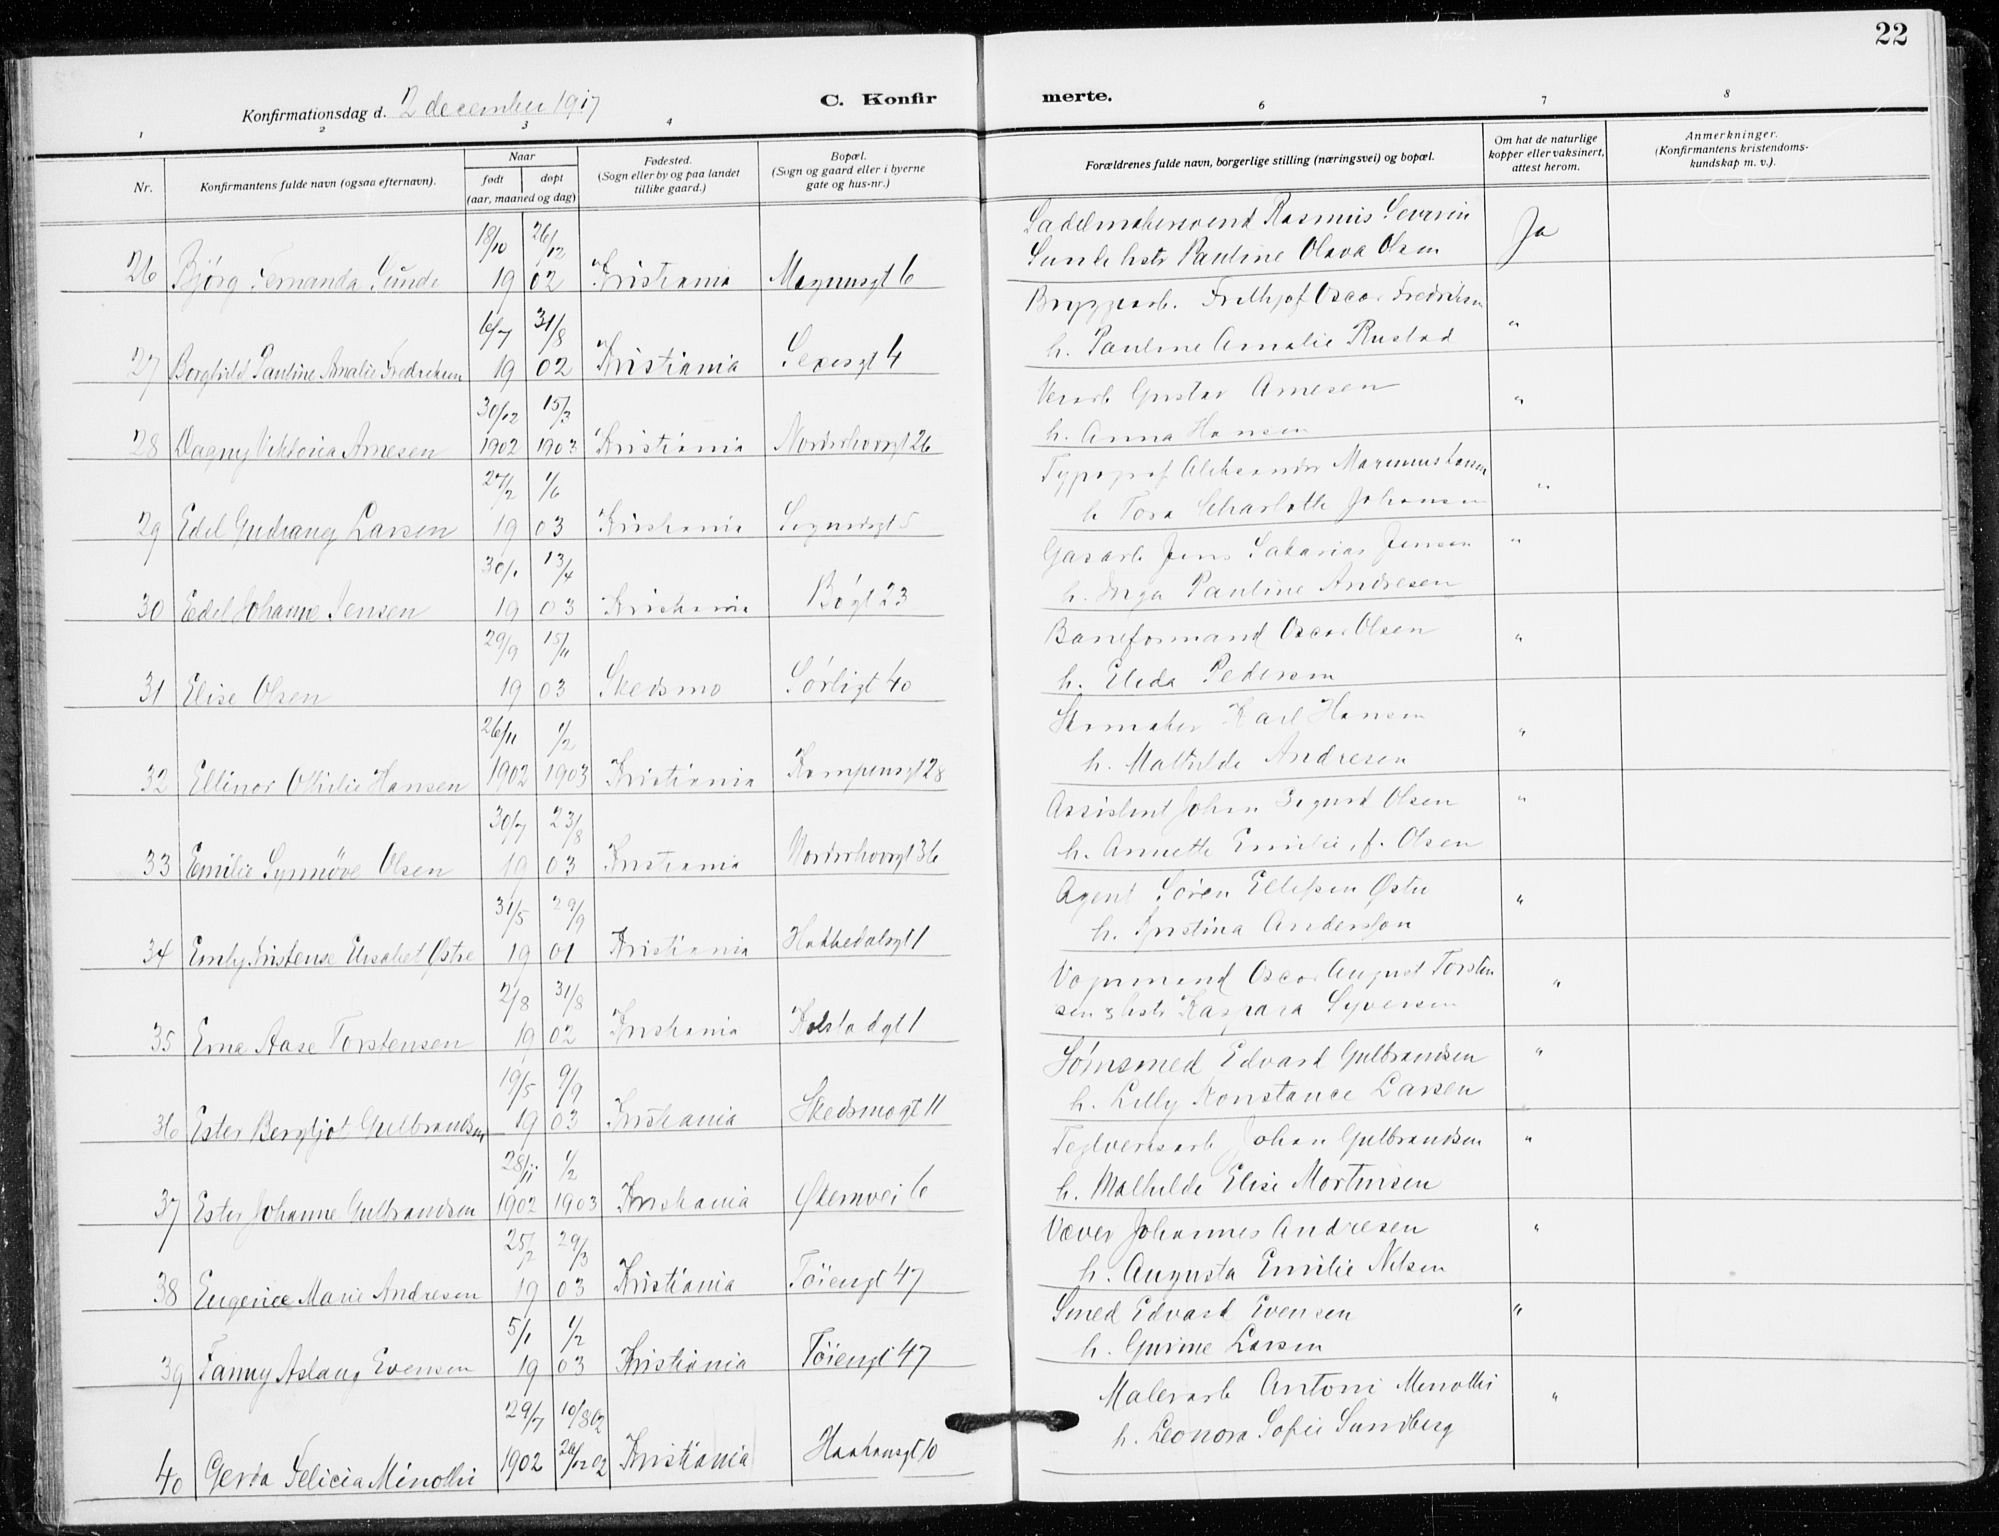 22
Konfirmationsdag d. 2 december 1917
C. Konfirmerte.
1 2 3 4 6 7 8
Nr. Konfirmantens fulde navn (ogsaa efternavn). Naar født døpt (aar, maaned og dag) Fødested. (Sogn eller by og paa landet tillike gaard.) Bopæl. (Sogn og gaard eller i byerne gate og hus-nr.) Forældrenes fulde navn, borgerlige stilling (næringsvei) og bopæl. Om hat de naturlige kopper eller vaksinert, attest herom. Anmerkninger. (Konfirmantens kristendomskundskap m. v.).
18/10 26/12 Sadelmakersvend Rasmus Severin Ja
26 Bjørg Fernanda Sunde 19 02 Kristiania Magnusgt 6 Sunde hstr Pauline Olava Olsen
6/7 31/8 Bryggearb. Frithjof Oscar Fredriksen "
27 Borghild Pauline Amalie Fredriksen 19 02 Kristiania Sexesgt 4 h. Pauline Amalie Rustad
30/12 15/3 Verarb Gustav Arnesen "
28 Dagny Viktoria Arnesen 1902 1903 Kristiania Norderhovsgt 26 h. Anna Hansen
27/2 1/6 Typograf Aleksander Larsen "
29 Edel Larsen 19 03 Kristiania Sognsgt 5 h Tora Scharlotte Johansen
30/1 13/4 Gasarb Jens Sakarias Jensen "
30 Edel Johanne Jensen 19 03 Kristiania Bøgt 23 h. Inga Pauline Andresen
29/9 15/11 Baneformand Oscar Olsen "
31 Elise Olsen 19 03 Skedsmo Sørligt 40 h. Elida Pedersen
26/11 1/2 Skomaker Karl Hansen "
32 Ellinor Othilie Hansen 1902 1903 Kristiania Kampensgt 28 h. Mathilde Andresen
30/7 23/8 Assistent Johan Sigurd Olsen "
33 Emilie Synnøve Olsen 19 03 Kristiania Norderhovsgt 36 h. Annette Emilie, f. Olsen
31/5 29/9 Agent Sören Ellefsen Østre "
34 Emly Kristense Elisabet Østre 19 01 Kristiania Hakkedalsgt 1 h. Kristina Andersson
2/8 31/8 Vognmand Oscar August Torsten "
35 Erna Aase Torstensen 19 02 Kristiania Kolstadgt 1 sen & hstr Kaspara Syversen
19/5 9/9 Sømsmed Edvard Gulbrandsen "
36 Ester Bergljot Gulbrandsen 19 03 Kristiania Skedsmogt 11 h. Lilly Konstance Larsen
28/11 1/2 Teglverksarb Johan Gulbrandsen "
37 Ester Johanne Gulbrandsen 1902 1903 Kristiania Økernvei 6 h. Mathilde Elise Mortinsen
25/2 29/3 Væver Johannes Andresen "
38 Eugenie Marie Andresen 19 03 Kristiania Töiengt 47 h. Augusta Emilie Nilsen
5/1 1/2 Smed Edvard Evensen "
39 Fanny Aslaug Evensen 19 03 Kristiania Töiengt 47 h. Gurine Larsen
29/7 10/8 02 Malerarb Antoni Minotti "
40 Gerda Felicia Minotti 1902 26/12 02 Kristiania Haakonsgt 10 h. Leonora Sofie Sundberg